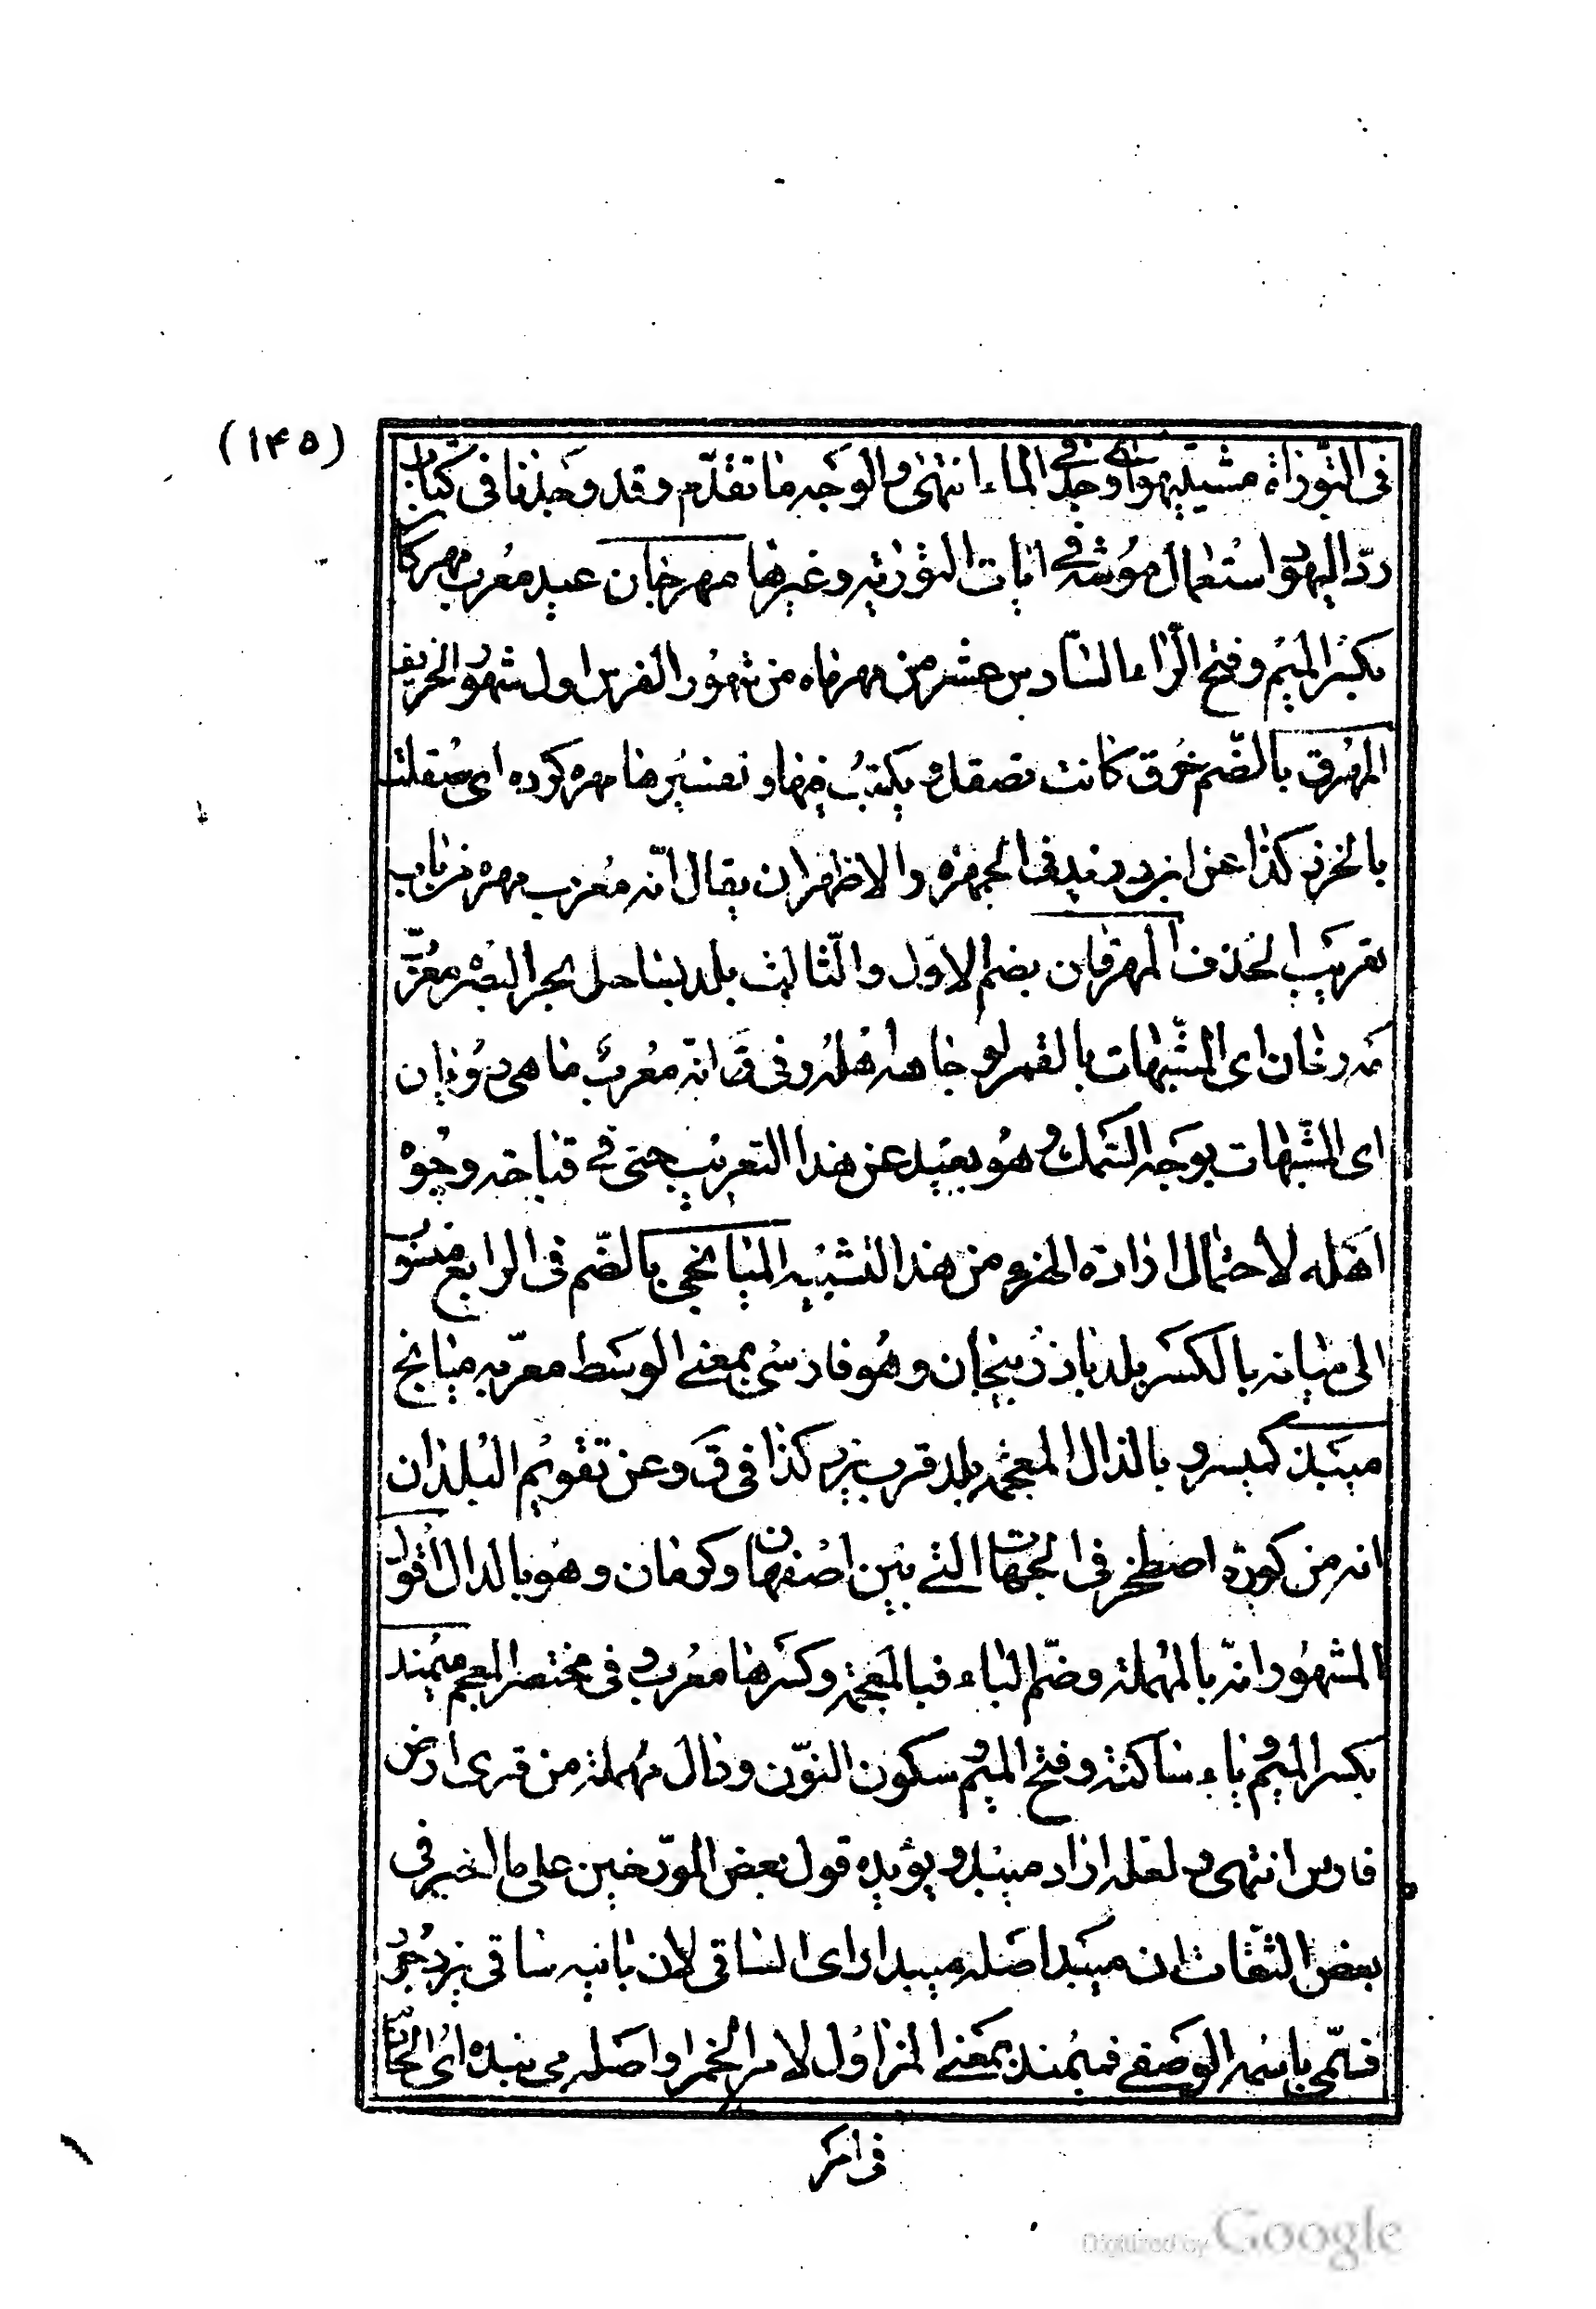 (۱۴۵)
فى التّوراة مشيتيهو اى وجد فى الماء انتهى و الوجه ما تقدّم و قد وجدنا فى كتاب
ردّ اليهود استعمال موشه فى ايات التورية و غيرها مهرجان عيد معرب مهركان
بكسر الميم و فتح الرّاء السّادس عشر من مهرماه من شهور الفرس اول شهور الخريف
المهرق بالضّم خرق كانت تصقل و يكتب فيها و تفسيرها مهره كوده اى صقلت
بالخرزه كذا عن ابن دريد فى الجمهرة و الاظهر ان يقال انّه معرب مهره من باب
تقريب الحذف المهرقان بضم الاوّل و الثّالث بلد بساحل بحر البصرة معرّب
مه رخان اى المشبّهات بالقمر لوجاهة اهله و فى ق انّه معرب ماهى رويان
اى المشبّهات بوجه السّمك و هو بعيد عن هذا التعريب حتى فى قباحة وجوه
اهله لاحتمال ارادة الهزء من هذا التشبيه الميانجى بالضّم فى الرابع منسوب
الى ميانه بالكسر بلد باذربيجان و هو فارسى بمعنى الوسط معرّبه ميانج
ميبذ كميسر و بالذال المعجمة بلد قرب يزد كذا فى ق و عن تقويم البلدان
انه من كورة اصطخر فى الجهات التى بين اصفهان و كرمان و هو بالدال اقول
المشهور انّه بالمهملة و ضمّ الباء فبالمعجمة و كسرها معرب و فى مختصر المعجم ميمند
بكسر الميم و ياء ساكنة و فتح الميم و سكون النوّن و دال مهملة من قرى ارض
فارس انتهى و لعله اراد ميبد و يؤيده قول بعض المورّخين على ما اخبرنى
بعض الثقات ان ميبد اصله ميبد ا راى الساقى لان بانيه ساقى يزدجرد
فسمّى باسمه الوصفى فميمند بمعنى المزاول لامر الخمر او اصله مى بنده اى الخادم
فى امر
Digitized by Google